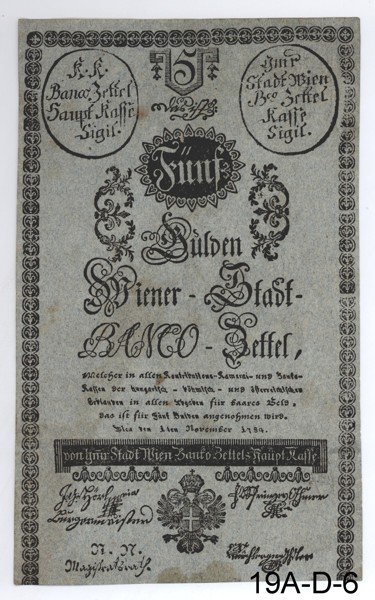 K. K.
Banco Zettel
Haupt Kasse
Sigil.
5
Stadt Wien
Bco Zettel
Kasse
Sigil.
Fünf
Gulden
Wiener-Stadt-
BANCO-Zettel,
Welcher in allen Kontributions-Kameral- und Banko-
Kassen der hungarisch- böhmisch- und österreichischen
Erblanden in allen Abgaben für baares Geld,
das ist für fünf Gulden angenommen wird.
Wien den 1ten November 1784.
von Stadt Wien Banko Zettels Haupt Kasse
Burgermeister
N. N.
Magistratsrath
19A-D-6